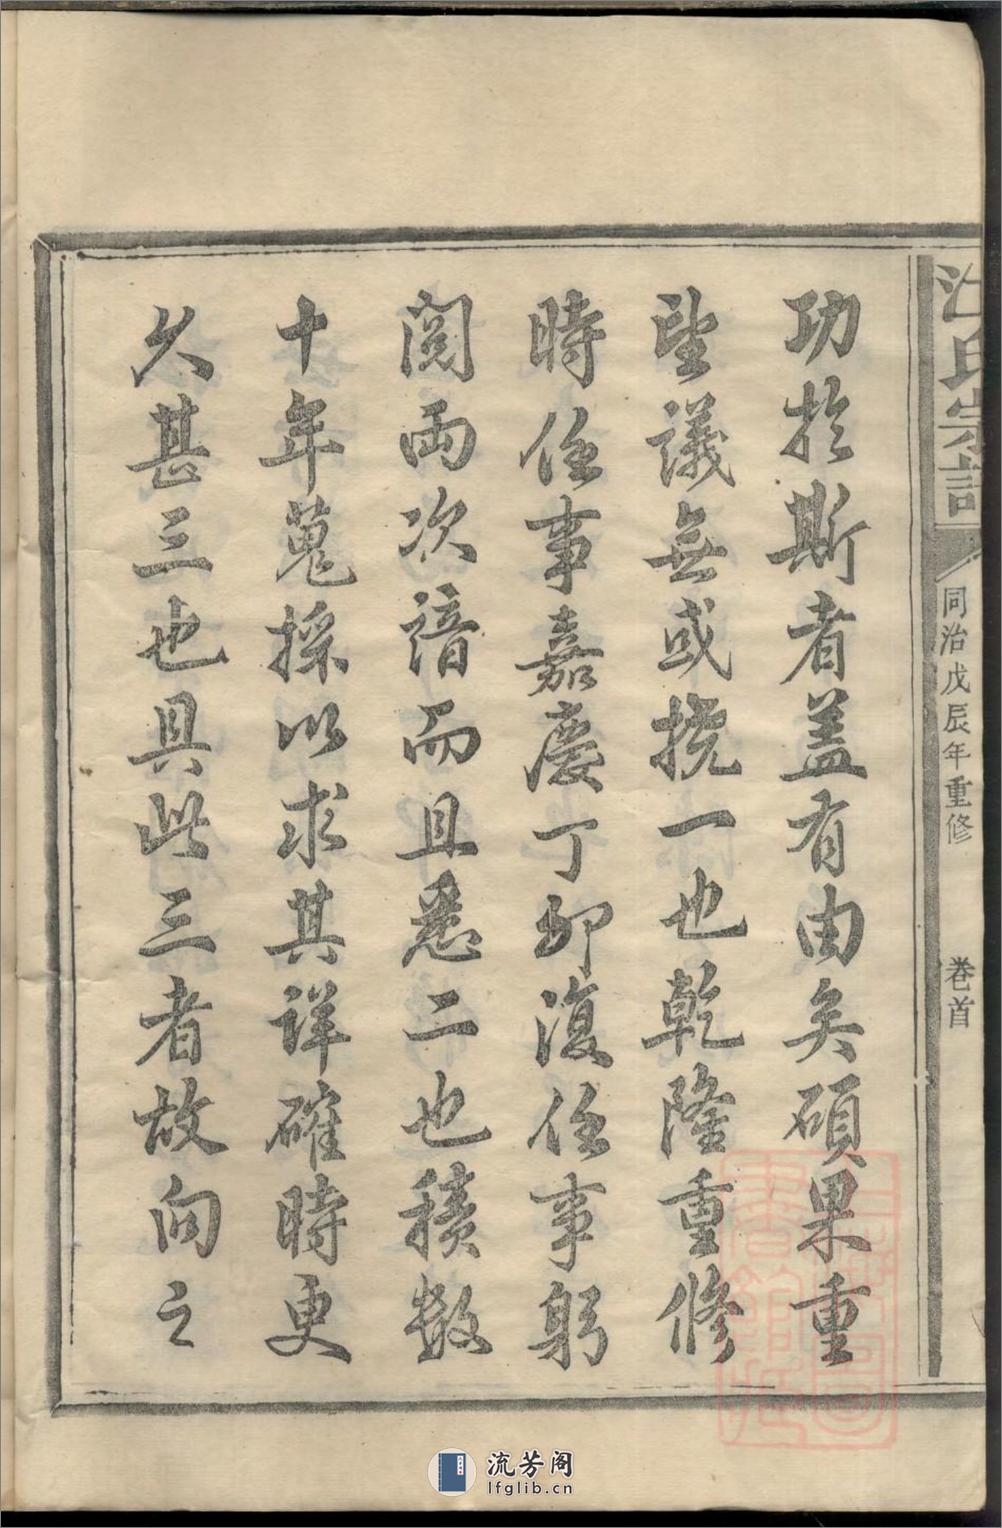 氏宗譜
同治戊辰年重修
卷首
功於斯者蓋有由矣碩果重
望議無或撓一也乾隆重修
時任事嘉慶丁卯復任事躬
閱兩次諳而且悉二也積數
十年蒐採以求其詳確時更
久甚三也具此三者故向之
流芳阁
lfglib.cn